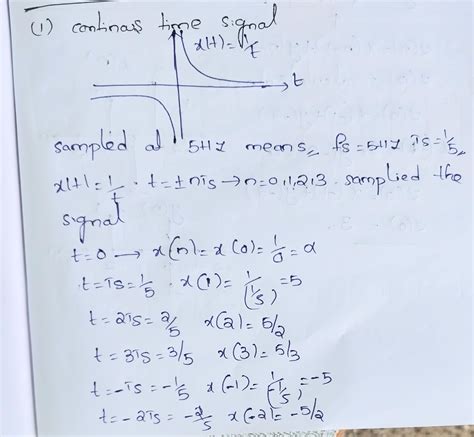 (1) continous time signal
x(t)=1/t
t
sampled at 5Hz means fs=5Hz Ts=1/5
x(t)=1/t . t=±nTs→n=0,1,2,3 samplied the
signal
t=0 → x(n)=x(0)=1/0=α
t=Ts=1/5 . x(1)=1/(1/5)=5
t=2Ts=2/5 x(2)=5/2
t=3Ts=3/5 x(3)=5/3
t=-Ts=-1/5 x(-1)=1/(-1/5)=-5
t=-2Ts=-2/5 x(-2)=-5/2